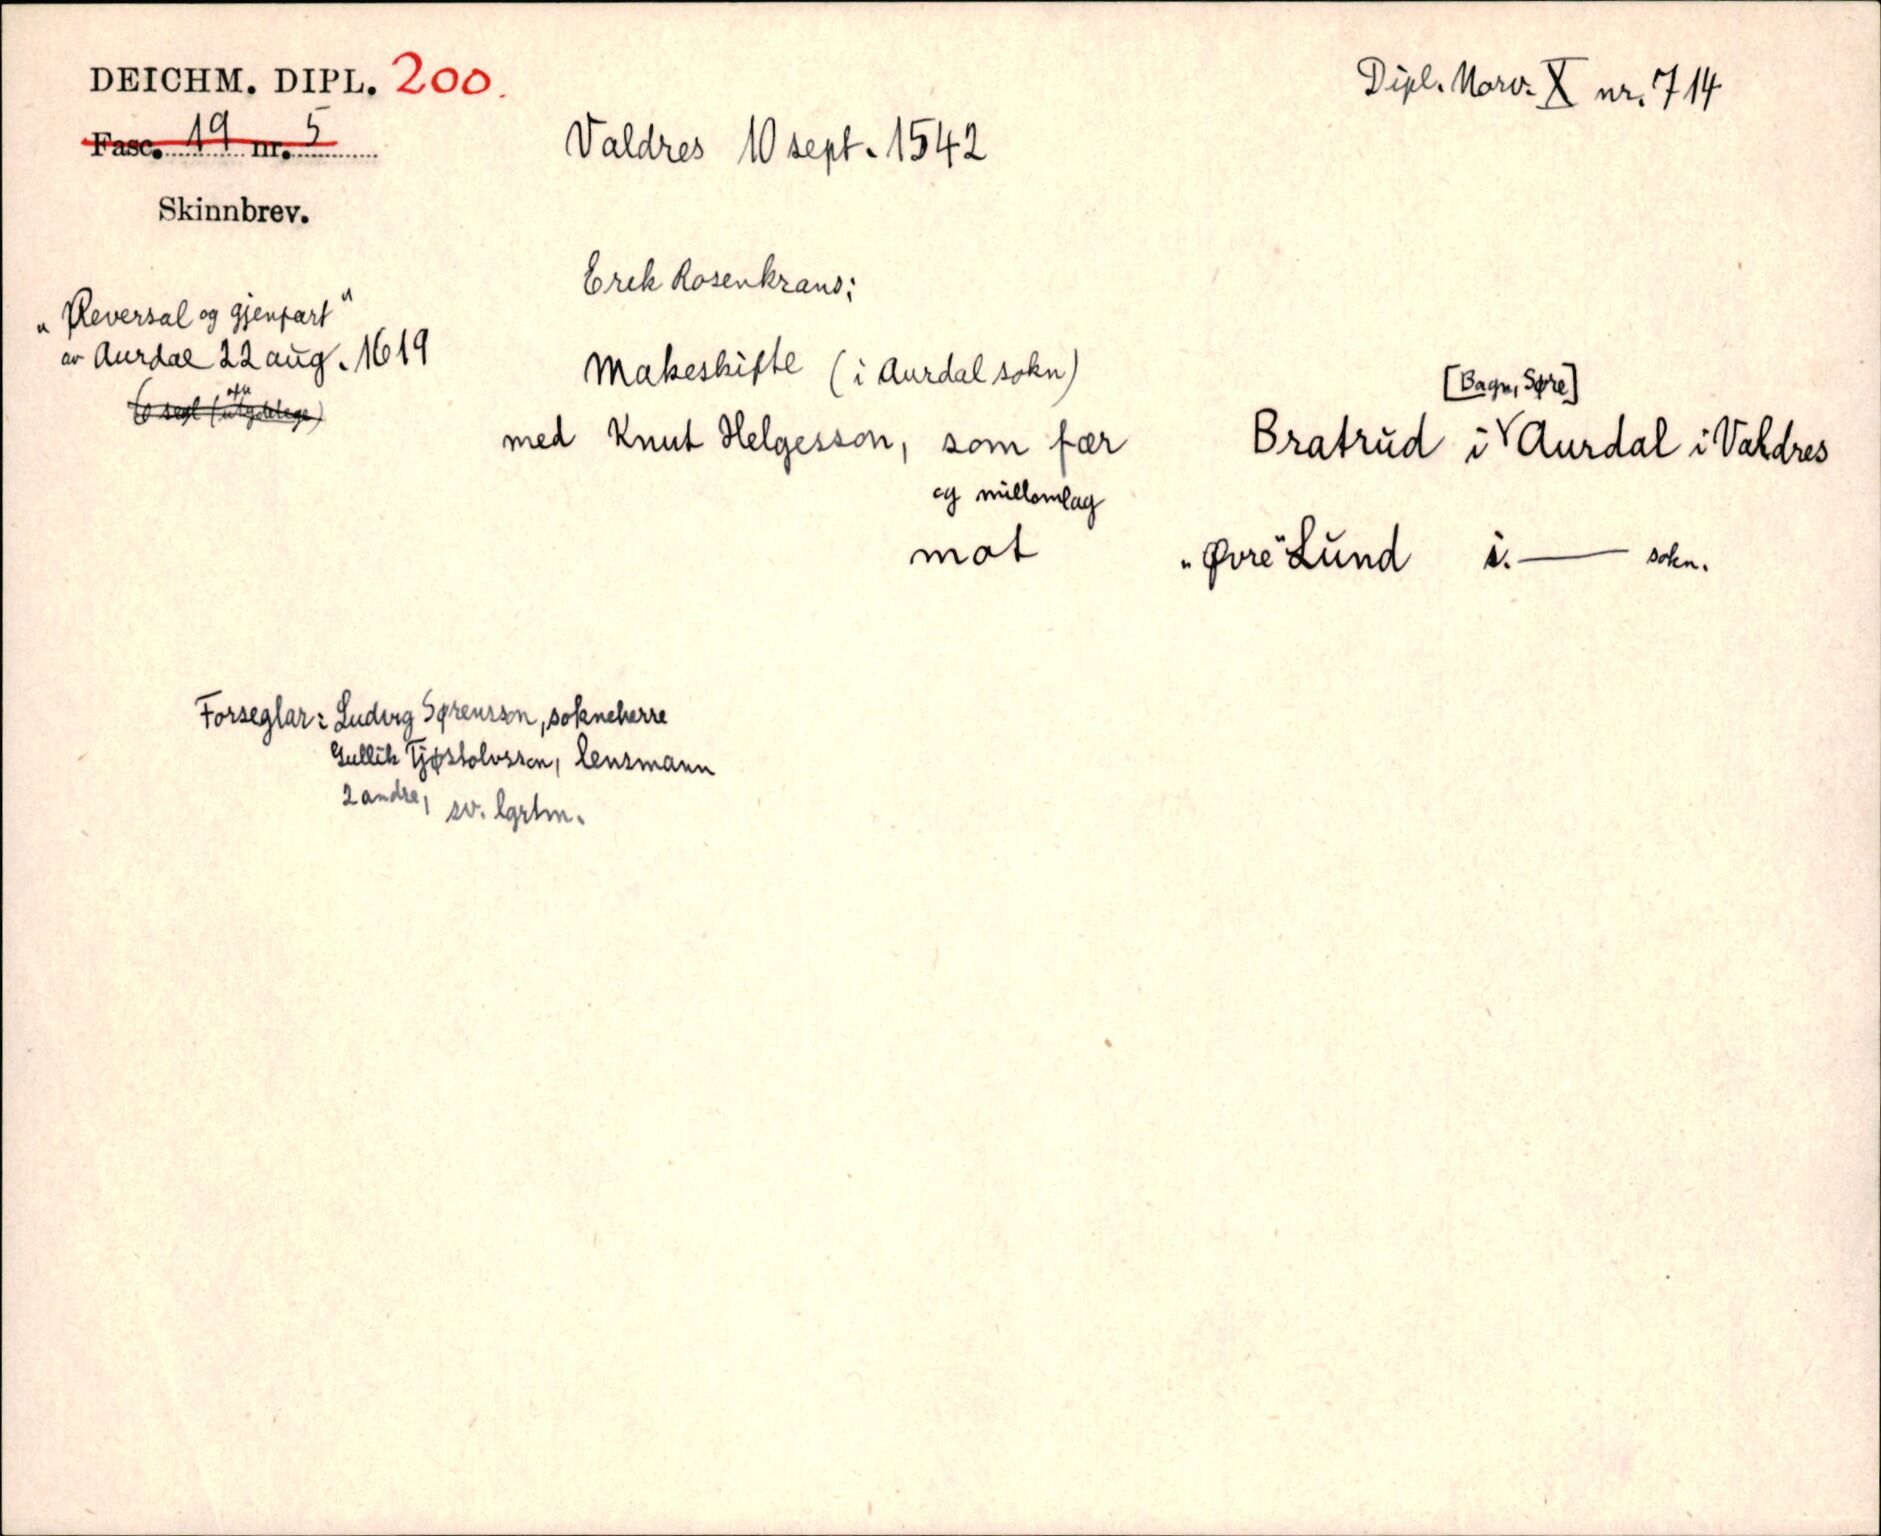 DEICHM. DIPL. 200.
Dipl. Norv. X nr. 714
Fasc. 19 nr. 5
Valdres 10 sept. 1542
Skinnbrev.
Erik Rosenkrans;
„Reversal og gjenpart"
av Aurdal 22 aug. 1619
Makeskifte (i Aurdal sokn)
[Bagn, Søre]
med Knut Helgesson, som fær Bratrud i Aurdal i Valdres
og millomlag
mot „Øvre" Lund i. —— sokn.
Forseglar: Ludvig Sørensson, sokneherre
Gullik Tjøstolvsson, lensmann
2 andre, sv. lgrtm.